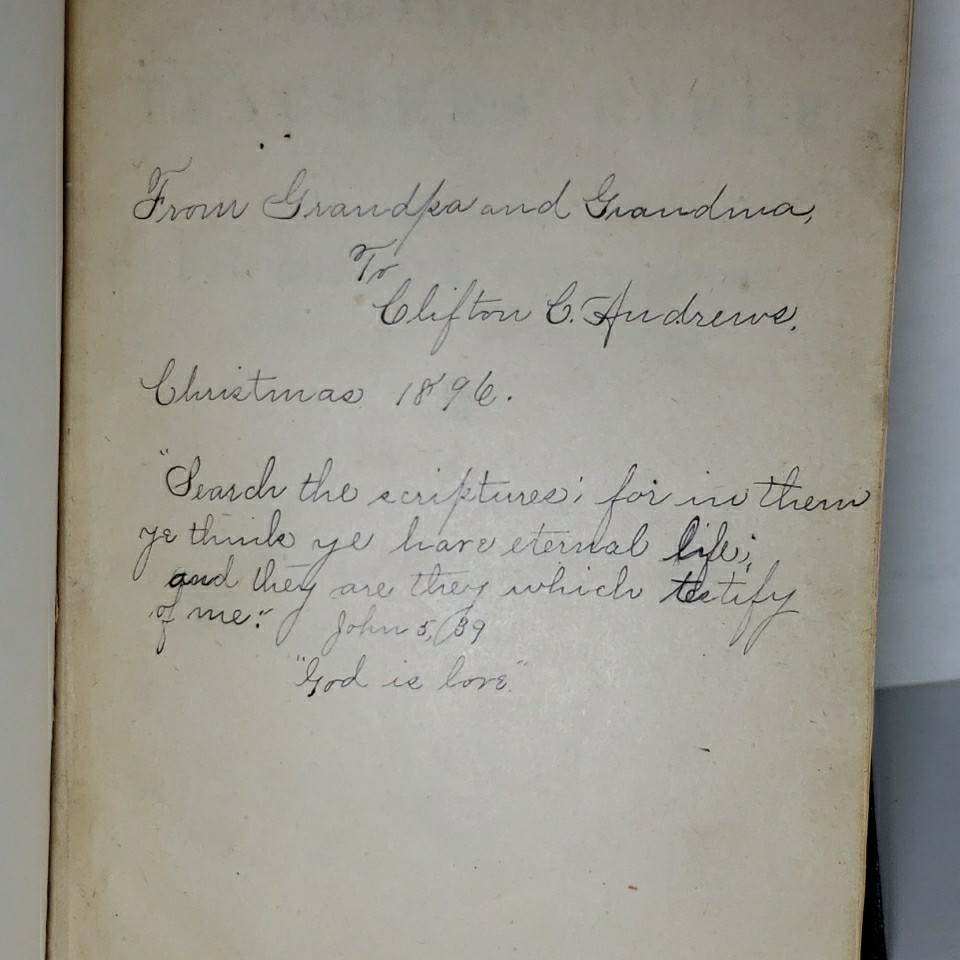 From Grandpa and Grandma,
To
Clifton C. Andrews.
Christmas 1896.
"Search the scriptures; for in them
ye think ye have eternal life;
and they are they which testify
of me." John 5, 39
"God is love"